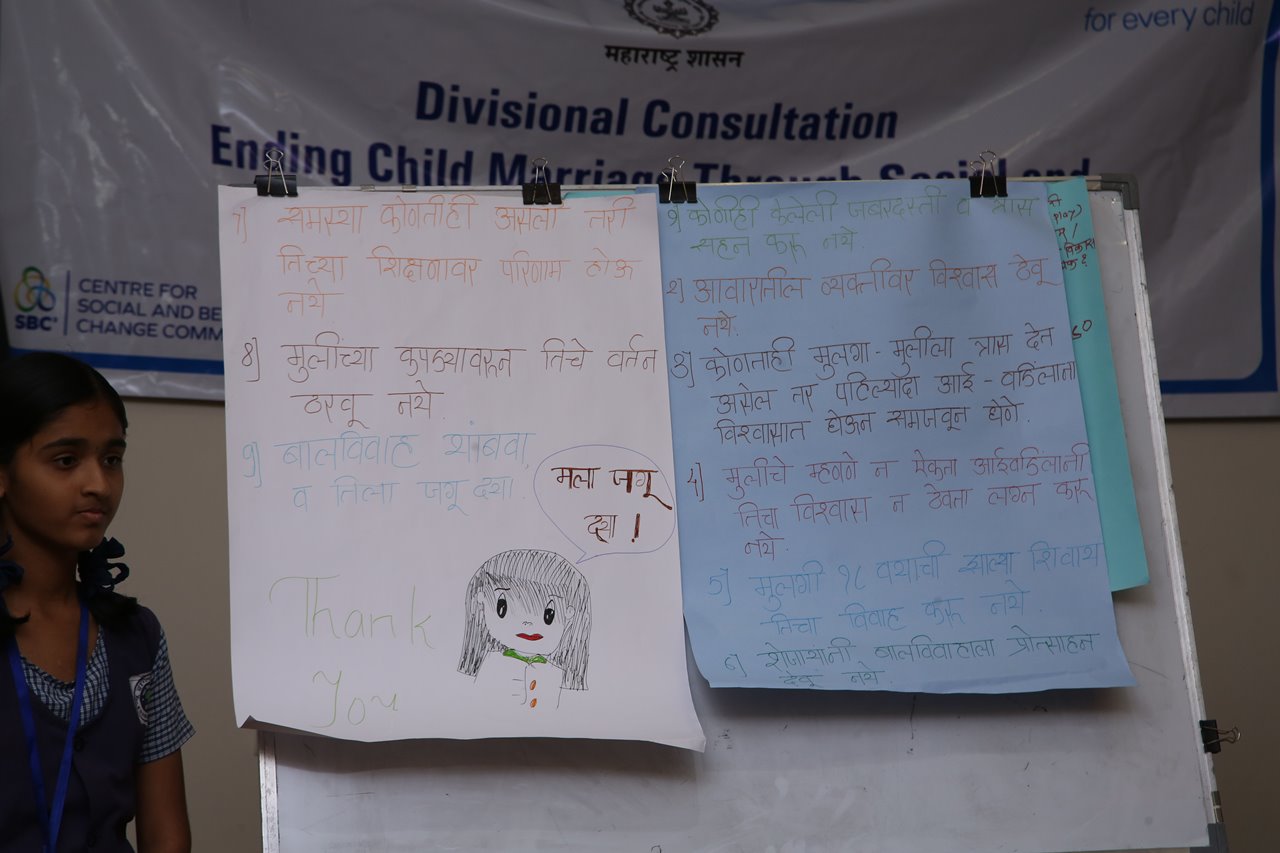 for every child
महाराष्ट्र शासन
Divisional Consultation
Ending Child Marriage Through Social and
CENTRE FOR
SOCIAL AND BE
CHANGE COMM
SBC
७) समस्या कोणतीही असली तरी
तिच्या शिक्षणावर परिणाम होऊ
नये
८) मुलींच्या कपड्यावरून तिचे वर्तन
ठरवू नये.
९) बालविवाह थांबवा,
व तिला जगू द्या.
मला जगू
द्या !
Thank
You
१) कोणीही केलेली जबरदस्ती व त्रास
सहन करू नये.
२) आवारातील व्यक्तींवर विश्वास ठेवू
नये.
३) कोणताही मुलगा - मुलीला त्रास देत
असेल तर पहिल्यांदा आई - वडिलांना
विश्वासात घेऊन समजवून घेणे.
४) मुलीचे म्हणणे न ऐकता आईवडिलांनी
तिचा विश्वास न ठेवता लग्न करू
नये.
५) मुलगी १८ वर्षाची झाल्या शिवाय
तिचा विवाह करू नये.
६) शेजार्‍यांनी बालविवाहाला प्रोत्साहन
देवू नये.